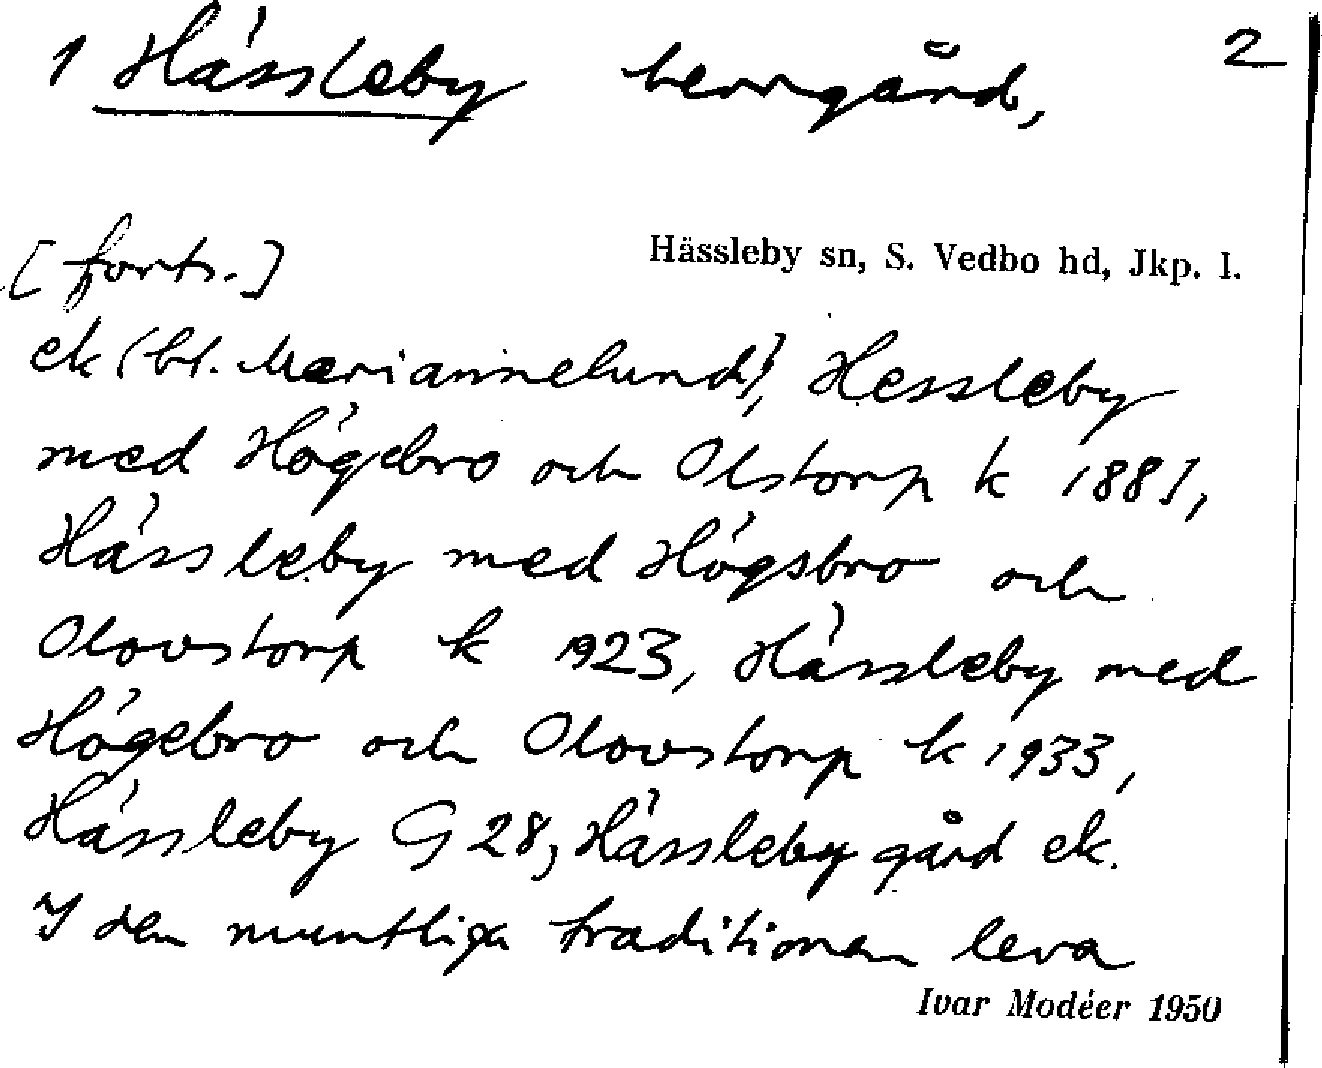 1 Hässleby herrgård, 2
Hässleby sn, S. Vedbo hd, Jkp. l.
[forts.]
ek (bl. Mariannelund), Hessleby
med Högebro och Olstorp k 1881,
Hässleby med Högsbro och
Olovstorp k 1923, Hässleby med
Högebro och Olovstorp k 1933,
Hässleby G 28, Hässleby gård ek.
I den muntliga traditionen leva
Ivar Modéer 1950